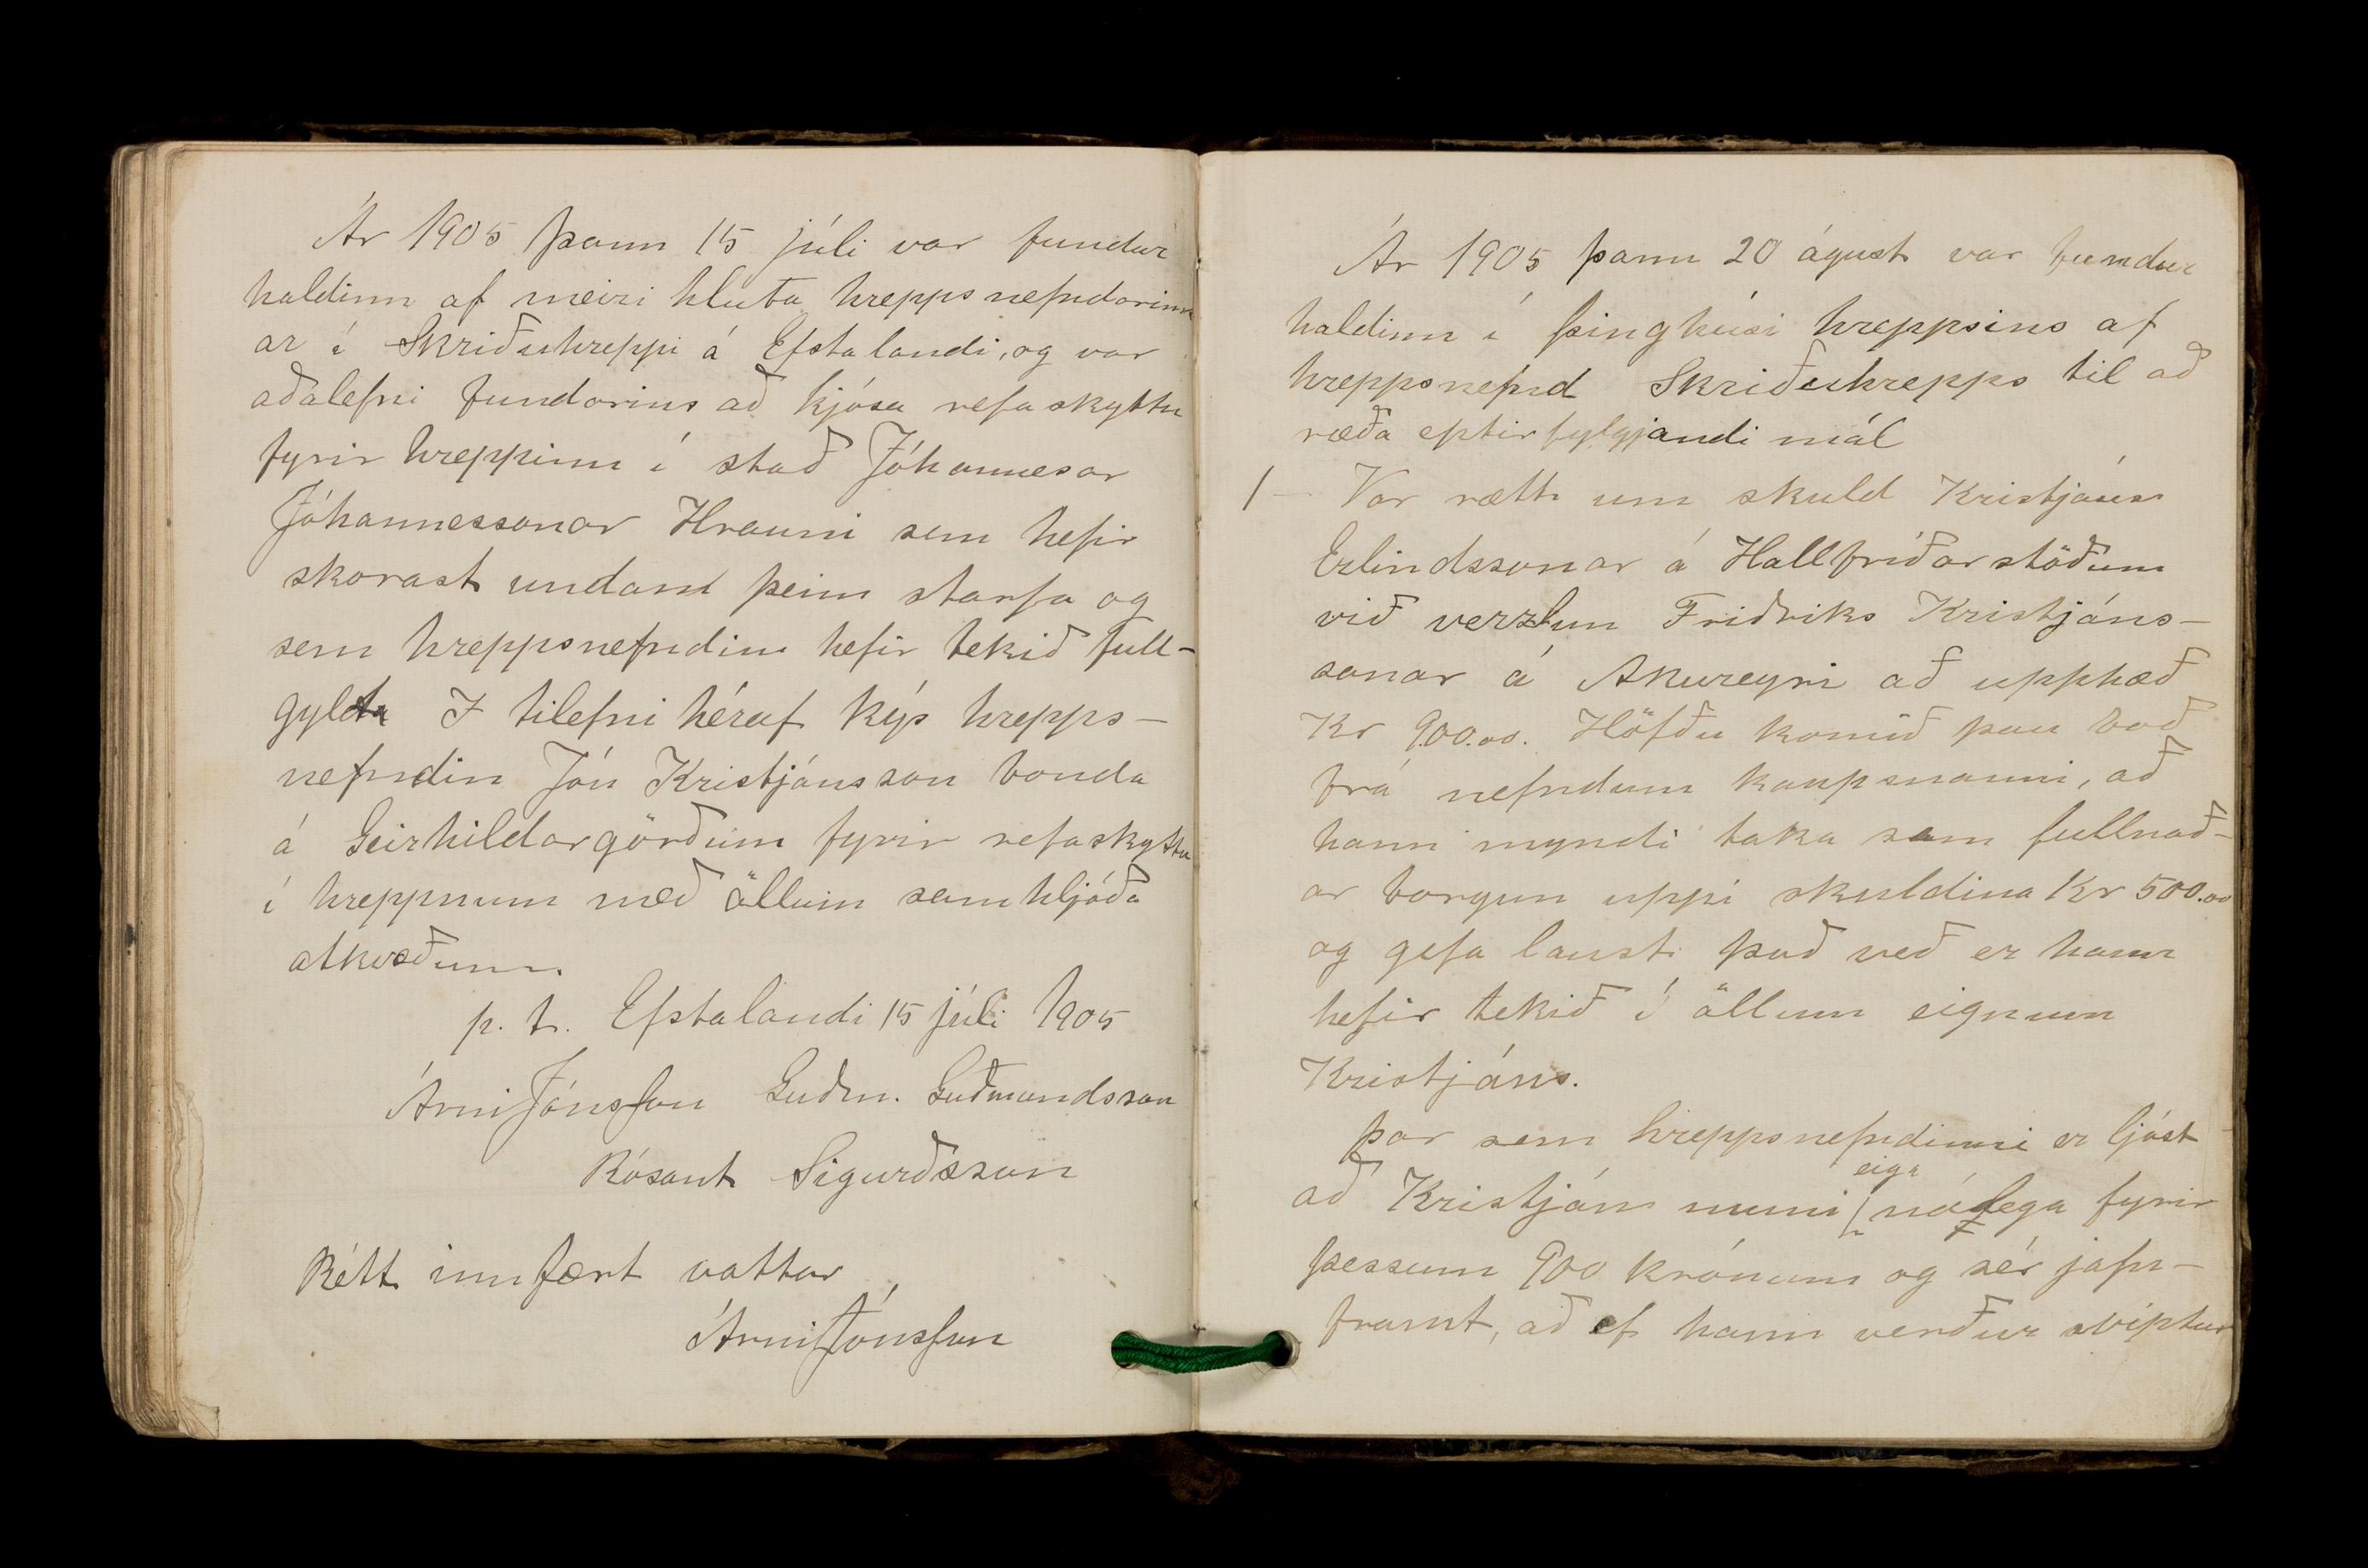 Ár 1905 þann 15 júli var fundur
haldinn af meiri hluta hreppsnefndarinn
ar í Skriðuhreppi á Efstalandi, og var
aðalefni fundarins að kjósa refaskyttu
fyrir hreppinn í stað Jóhannesar
Jóhannessonar Hrauni sem hefir
skorast undan þeim starfa og
sem hreppsnefndin hefir tekið full-
gylda I tilefni héraf kýs hrepps-
nefndin Jón Kristjánsson bonda
á Geirhildargörðum fyrir refaskyttu
í hreppnum með öllum samhljóða
atkvæðum.
p. t. Efstalandi 15 júli 1905
Árni Jónsson Guðm. Guðmundsson
Rósant Sigurðsson
Rétt innfært vattar
Árni Jónsson
Ár 1905 þann 20 ágúst var fundur
haldinn í þinghúsi hreppsins af
hreppsnefnd Skriðuhrepps til að
ræða eptirfylgjandi mál
1 - Var rætt um skuld Kristjáns
Erlindssonar á Hallfríðarstöðum
við verzlun Friðriks Kristjáns-
sonar á Akureyri að upphæð
Kr 900.00. Höfðu komið þau boð
frá nefndum kaupmanni, að
hann myndi taka sem fullnað-
ar borgun uppi skuldina Kr 500.00
og gefa laust það veð er hann
hefir tekið í öllum eignum
Kristjáns.
Þar sem hreppsnefndinni er ljóst
að Kristján muni eiga nálega fyrir
þessum 900 krónum og sér jafn-
framt, að ef hann verður sviptur